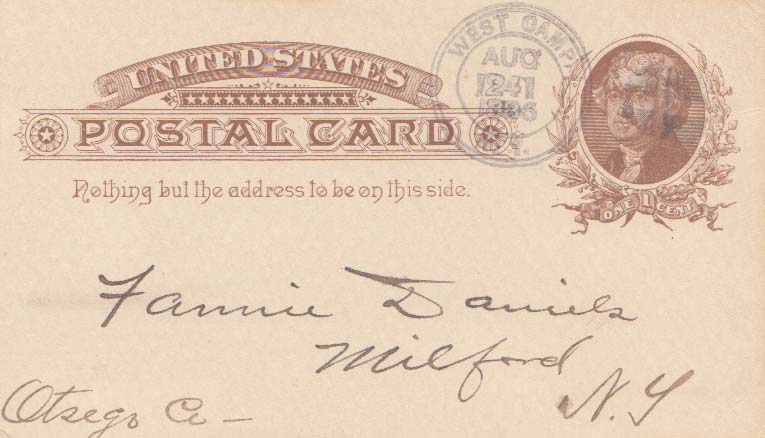 UNITED STATES
POSTAL CARD
Nothing but the address to be on this side.
WEST CAMP
AUG
24
1886
ONE 1 CENT
Fannie Daniels
Milford
N.Y
Otsego Co –